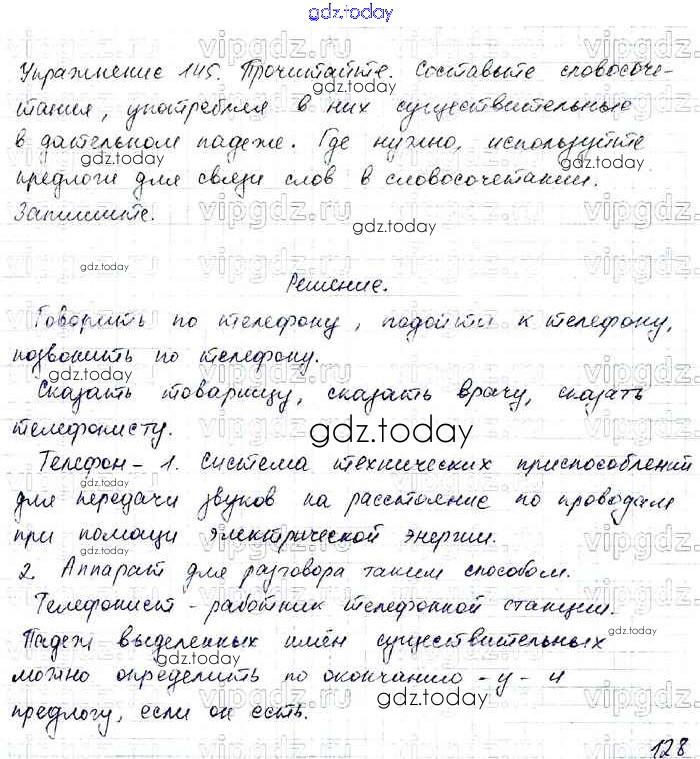 gdz.today
Упражнение 145. Прочитайте. Составьте словосоче-
тания, употребляя в них существительные
в дательном падеже. Где нужно, используйте
предлоги для связи слов в словосочетании.
Запишите.
Решение.
Говорить по телефону, подойти к телефону,
позвонить по телефону.
Сказать товарищу, сказать врачу, сказать
телефонисту.
Телефон - 1. Система технических приспособлений
для передачи звуков на расстояние по проводам
при помощи электрической энергии.
2. Аппарат для разговора таким способом.
Телефонист - работник телефонной станции.
Падеж выделенных имён существительных
можно определить по окончанию -у- и
предлогу, если он есть.
128